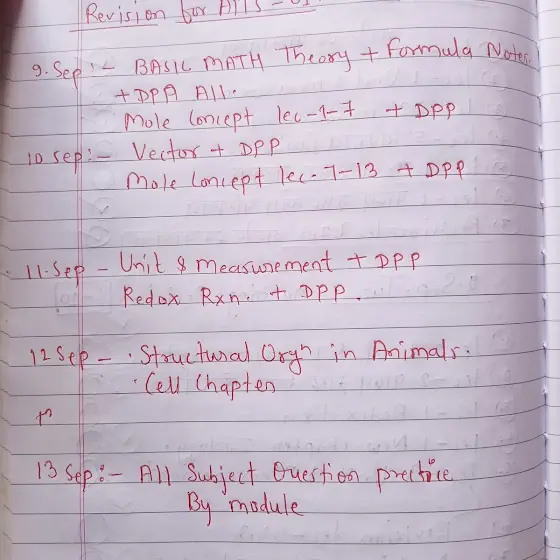 Revision for AITS - 01.
9. Sep :- BASIC MATH Theory + Formula Notes.
+ DPP All.
Mole Concept lec-1-7 + DPP
10 Sep :- Vector + DPP
Mole Concept lec-7-13 + DPP
11. Sep - Unit & measurement + DPP
Redox Rxn. + DPP.
12 Sep - • Structural Orgn in Animals.
• Cell Chapter
13 Sep :- All Subject Question prectice
By module